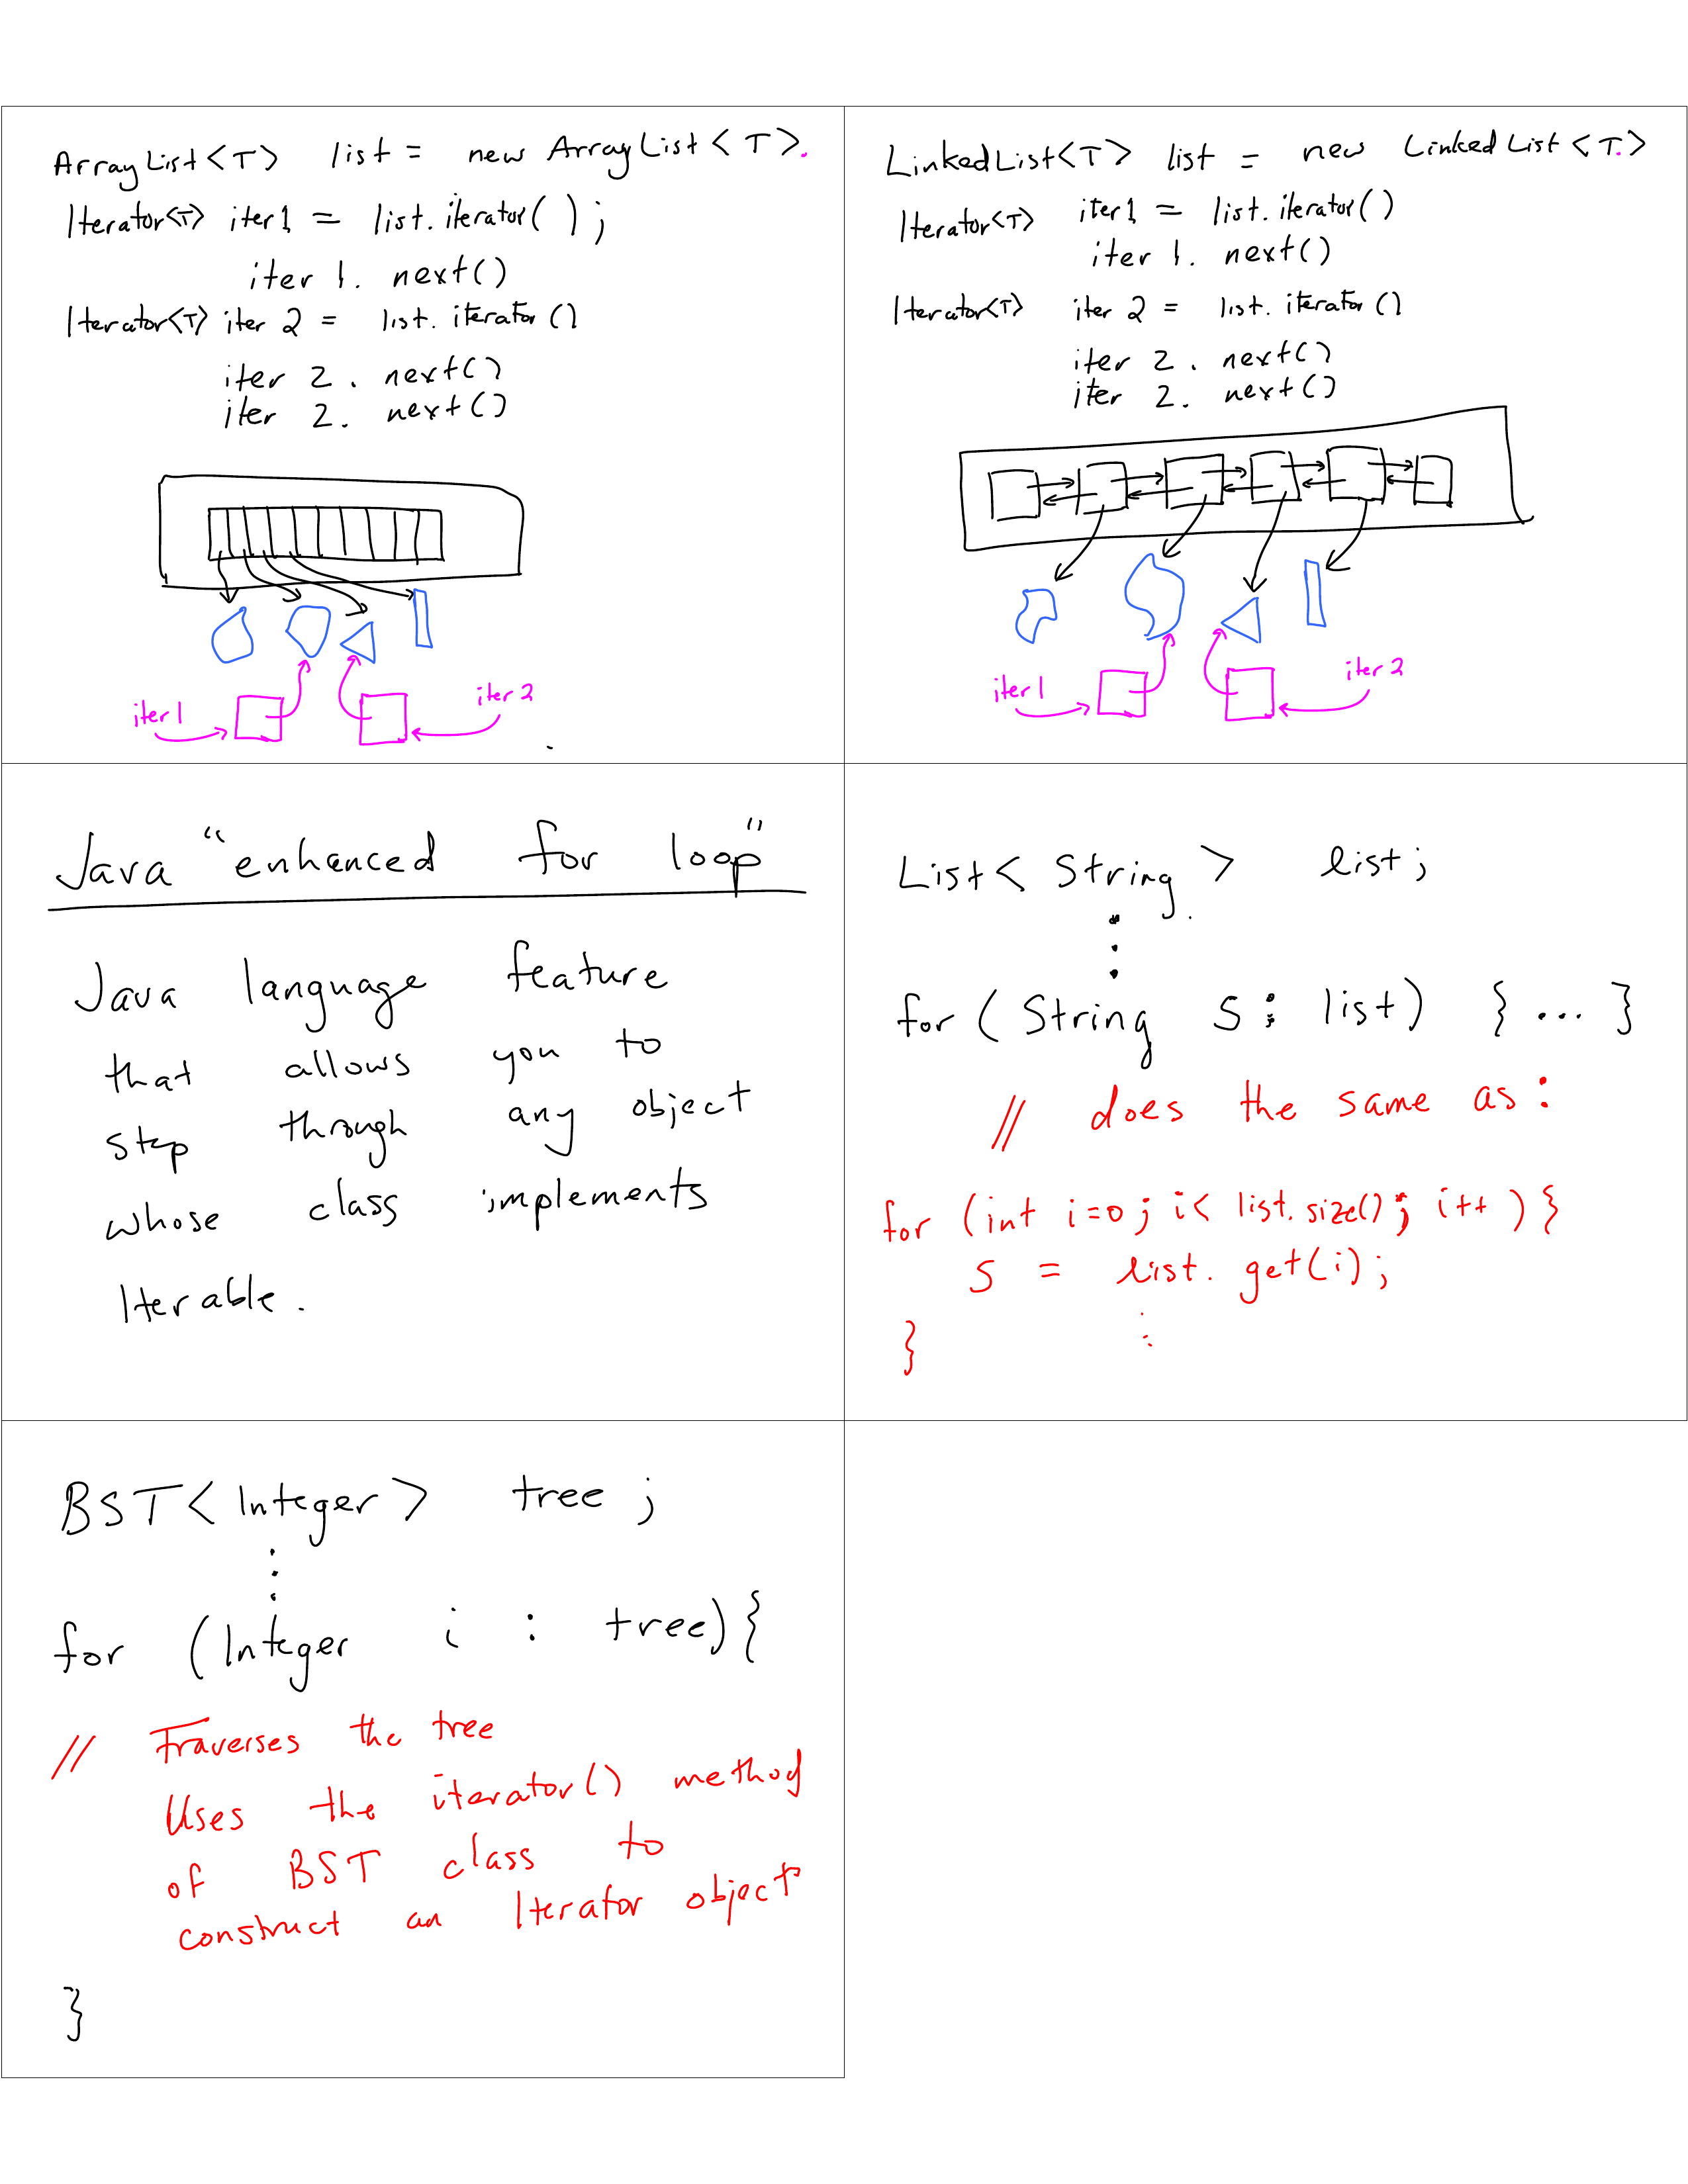 ArrayList<T> list = new ArrayList<T>.
Iterator<T> iter1 = list.iterator();
iter 1. next()
Iterator<T> iter 2 = list. iterator()
iter 2. next()
iter 2. next()
iter1
iter 2
LinkedList<T> list = new Linked List<T>
Iterator<T> iter1 = list.iterator()
iter 1. next()
Iterator<T> iter 2 = list. iterator()
iter 2. next()
iter 2. next()
iter1
iter 2
Java "enhanced for loop"
Java language feature
that allows you to
step through any object
whose class implements
Iterable.
List< String > list;
for ( String s : list) { ... }
// does the same as:
for (int i=0; i< list.size(); i++ ){
s = list. get(i);
}
BST< Integer > tree ;
for (Integer i : tree){
// Traverses the tree
Uses the iterator() method
of BST class to
construct an Iterator object
}